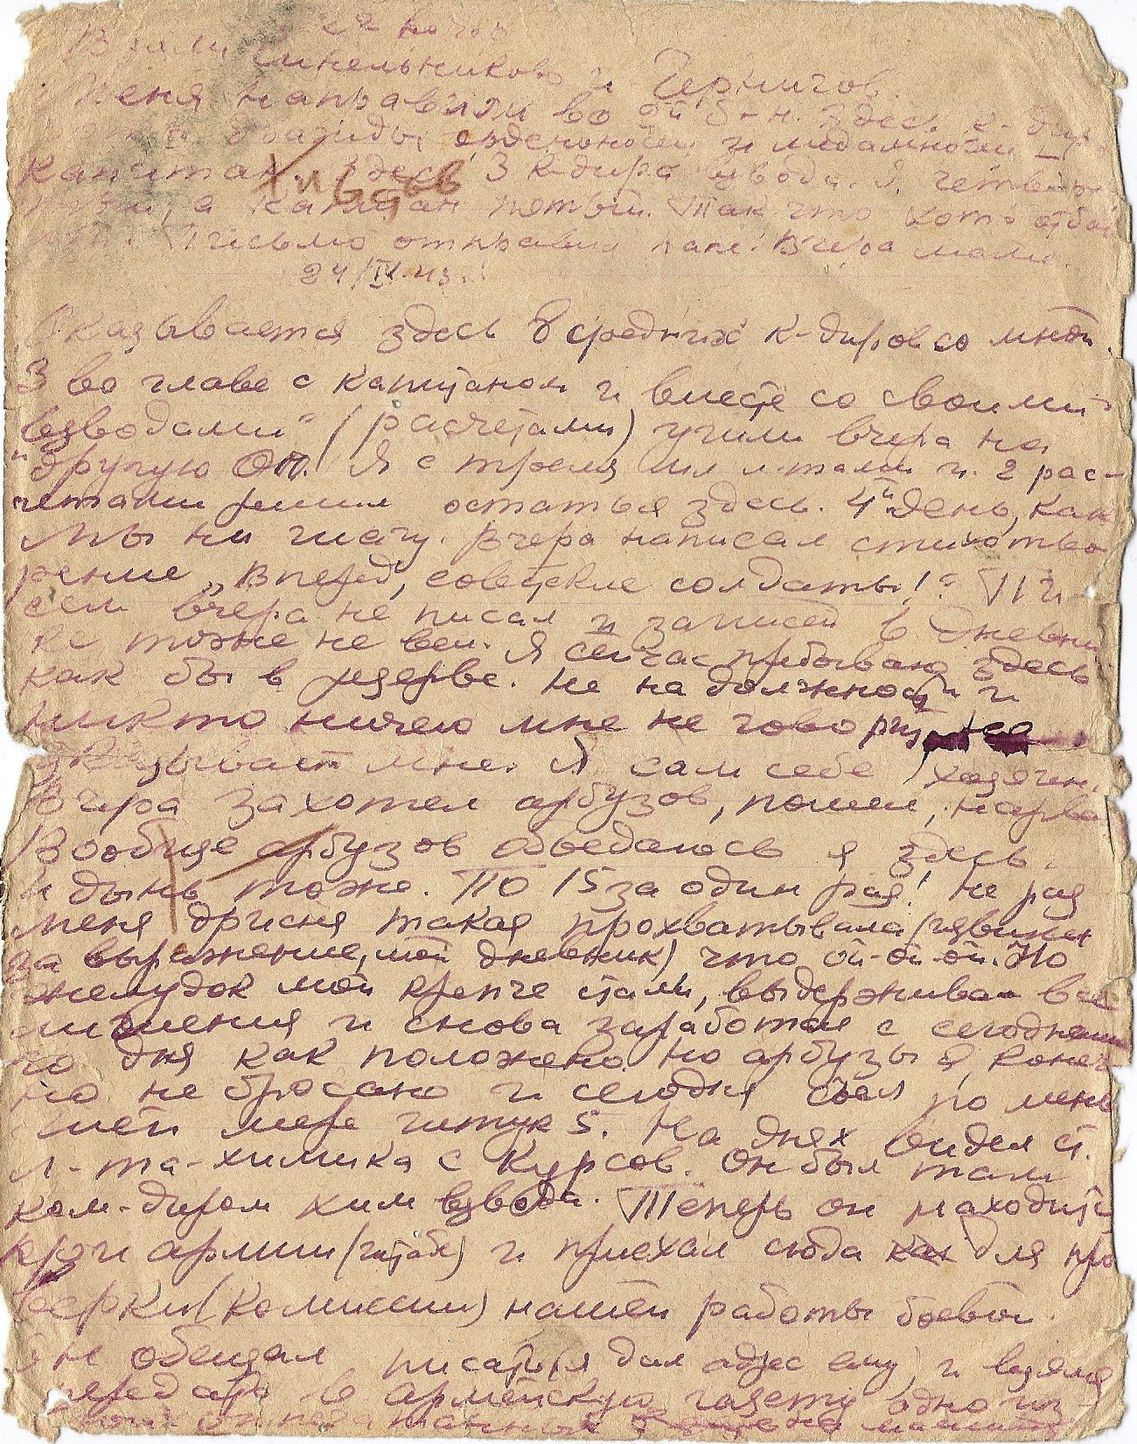 22 ночь
Взяли Синельниково и Чернигов.
Меня направили во 2й б-н. Здесь к-дир
дважды орденоносец и медаленосец
капитан. Здесь 3 к-дира взвода. Я четвер-
тый, а капитан пятый. Так что хоть отбав
Письмо отправил папе. Вчера маме.
24/IX.43.
Оказывается здесь 8 средних к-диров со мной.
3 во главе с капитаном и вместе со своими
"взводами" (расчетами) ушли вчера на
другую ОП. Я с тремя мл л-тами и 2 рас-
четами решил остаться здесь. 4й день, как
мы ни шагу. Вчера написал стихотво
рение „Вперед, советские солдаты!" Пи-
сем вчера не писал и записей в дневни
ке тоже не вел. Я сейчас пребываю здесь
как бы в резерве. Не на должности и
никто ничего мне не говорит
указывает мне. Я сам себе хозяин.
Вчера захотел арбузов, пошел, нарва
Вообще арбузов объедаюсь я здесь.
И дынь тоже. По 15 за один раз! Не раз
меня дрисня такая прохватывала (извиняй
за выражение, мой дневник) что ой-ой-ой. Но
желудок мой крепче стали, выдерживал все
и снова заработал с сегодняшн
го дня как положено. Но арбузы я, конеч
но не бросаю и сегодня съел по мень
шей мере штук 5. На днях видел ст.
л-та-химика с Курсов. Он был там
ком-диром хим взвода. Теперь он находитс
при армии (штабе) и приехал сюда как для про
верки (комиссии) нашей работы боевой.
Он обещал писать (я дал адрес ему) и взялся
передать в армейскую газету одно из